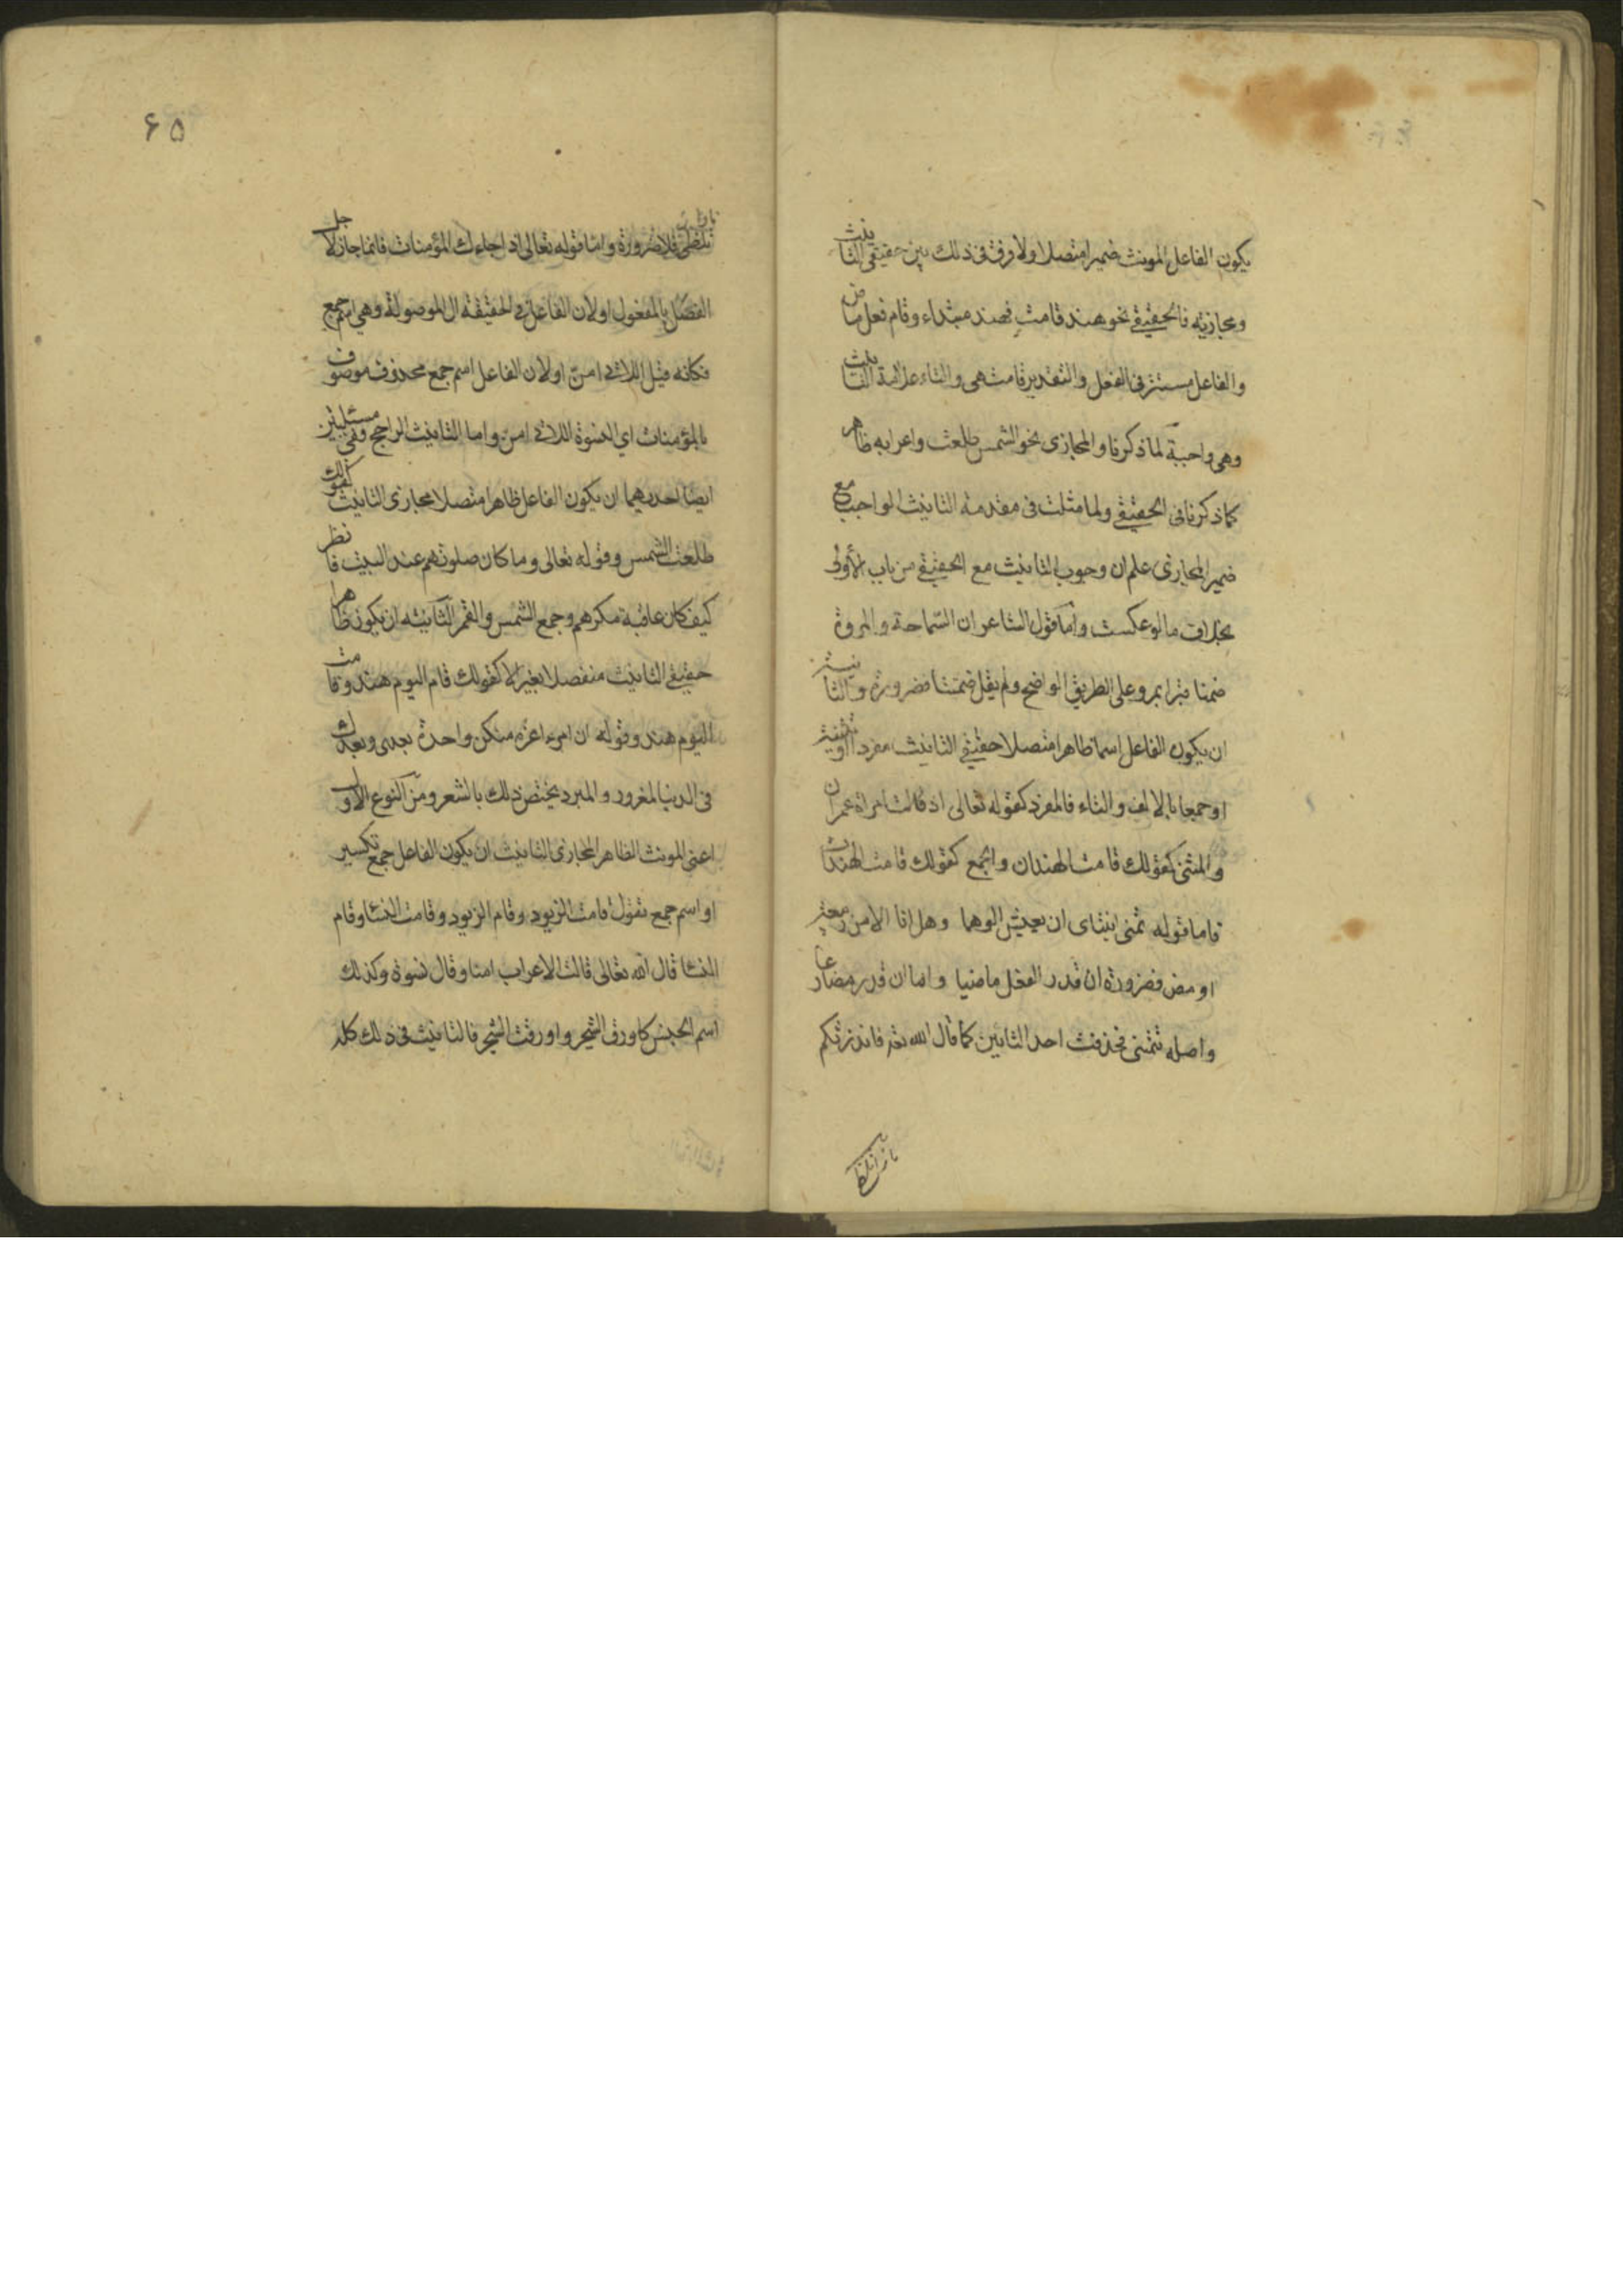 يكون الفاعل المونث ضميرا متصلا ولا فرق فى ذلك بين حقيقى التانيث
ومجازيه فالحقيقي نحو هند قامت فهند مبتداء وقام فعل ماض
والفاعل مستتر فى الفعل والتقدير قامت هى والتاء علامة التانيث
وهى واجبة لما ذكرنا والمجازى نحو الشمس طلعت واعرابه ظاهر
كما ذكرنا فى الحقيقي ولما مثلت فى مقدمة التانيث الواجب مع
ضمير المجازى علم ان وجوب التانيث مع الحقيقي من باب الأولى
بخلاف ما لو عكست وأما قول الشاعر ان السّماحة والمروة
ضمنا قبرا بمرو على الطريق الواضح ولم يقل ضمنتا فضرورة والثانية
ان يكون الفاعل اسما ظاهرا متصلا حقيقي التانيث مفردا او تثنية
او جمعا بالالف والتاء فالمفرد كقوله تعالى اذ قالت امراة عمران
والمثنى كقولك قامت الهندان والجمع كقولك قامت الهندات
فاما قوله تمنى ابنتاى ان يعيش ابوهما وهل انا الا من ربيعة
او مضر فضرورة ان قدر الفعل ماضيا واما ان قدر مضارعا
واصله تتمنى فحذفت احد التائين كما قال الله تعه فانذرتكم
نارا تلظى
٦٥
نارا تلظى فلا ضرورة واما قوله تعالى اذا جاءك المؤمنات فانما جاز لاجل
الفصل بالمفعول او لان الفاعل فى الحقيقة ال الموصولة وهى اسم جمع
فكانه قيل اللاتى امنّ او لان الفاعل اسم جمع محذوف موصوف
بالمؤمنات اى النسوة اللاتى امن واما التانيث الراجح وفى مسئلتين
ايضا احديهما ان يكون الفاعل ظاهرا متصلا مجازى التانيث كقولك
طلعت الشمس وقوله تعالى وما كان صلوتهم عند البيت فانظر
كيف كان عاقبة مكرهم وجمع الشمس والقمر الثانيه ان يكون ظاهرا
حقيقي التانيث منفصلا بغير الا كقولك قام اليوم هند وقامت
اليوم هند وقوله ان امرء اغره منكن واحدة بعدى وبعدك
فى الدنيا لمغرور والمبرد يختص ذلك بالشعر ومن النوع الاول
اعنى المونث الظاهر المجازى التانيث ان يكون الفاعل جمع تكسير
او اسم جمع تقول قامت الزيود وقام الزيود وقامت النسا وقام
النسا قال الله تعالى قالت الاعراب امنا وقال نسوة وكذلك
اسم الجنس كاورق الشجر واورقت الشجر فالتانيث فى ذلك كله